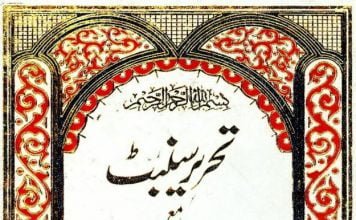 بسم الله الرحمن الرحيم
تحریر سنبٹ
مع